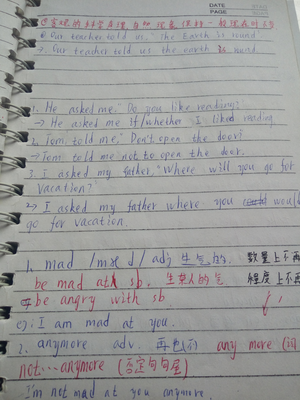 DATE
PAGE
① Our teacher told us, "The Earth is round".
②. Our teacher told us the earth is round.
1. He asked me, "Do you like reading?"
→ He asked me if/whether I liked reading
2. Tom told me, "Don't open the door!"
→ Tom told me not to open the door.
3. I asked my father, "Where will you go for
vacation?"
→ I asked my father where you would
go for vacation.
1. mad /mæd/ adj 生气的. 数量上不再
be mad at sb. 生某人的气 程度上不再
be angry with sb.
eg: I am mad at you.
2. anymore adv. 再也不 any more
not...anymore (否定句句尾)
I'm not mad at you anymore.